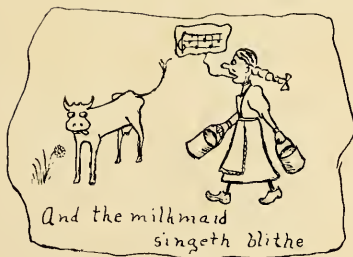 And the milkmaid
singeth blithe